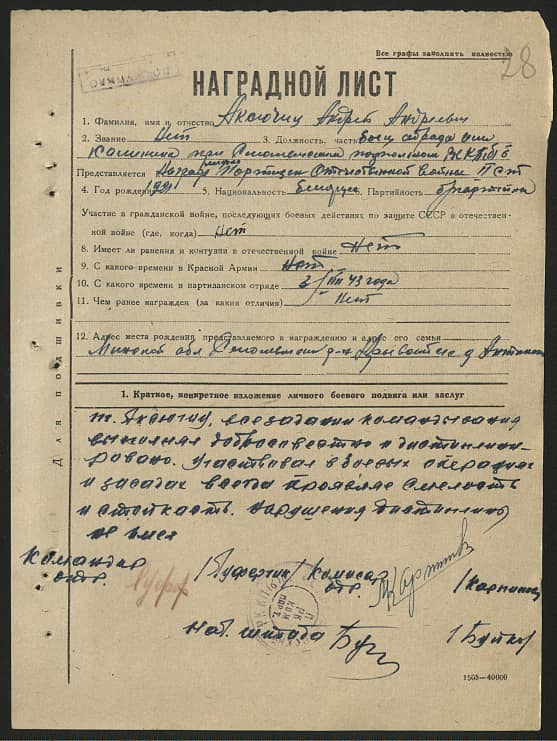 Все графы заполнить полностью
28
НАГРАДНОЙ ЛИСТ
1. Фамилия, имя и отчество Аксючиц Андрей Андреевич
2. Звание Нет 3. Должность, часть боец отряда им
Калинина при подпольном РК КП(б)Б
Представляется Награде Партизан Отечественной войны II ст
4. Год рождения 1921 5. Национальность Белорус 6. Партийность б/партийн
Участие в гражданской войне, последующих боевых действиях по защите СССР и отечествен-
ной войне (где, когда) Нет
8. Имеет ли ранения и контузии в отечественной войне Нет
9. С какого времени в Красной Армии Нет
10. С какого времени в партизанском отряде 3/VIII 43 года
11. Чем ранее награжден (за какие отличия) Нет
12. Адрес места рождения представляемого к награждению и адрес его семьи
Минской обл р-н д
Для подшивки
1. Краткое, конкретное изложение личного боевого подвига или заслуг
т. Аксючиц, все задания командывания
выполнял добросовестно и дисциплини-
ровано. Участвовал в боевых операциях
и засадах всегда проявлял смелость
и стойкость. Нарушений дисциплины
не имел
Командир /Буфертик/ Комиссар /Карпинец
отр. отр.
Нач. штаба
1505—40000